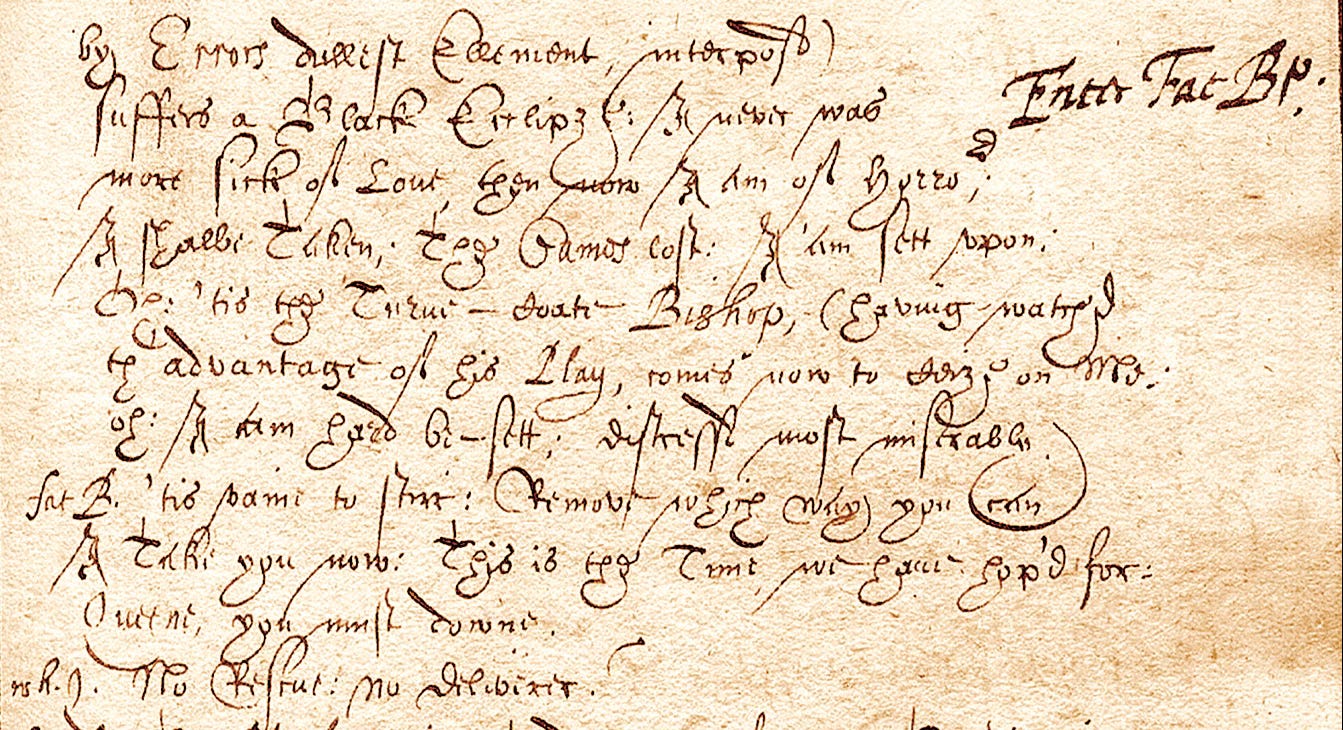 by Errors dullest Ellement, interpos'd)
Enter Fat Bp.
suffers a Black Ecclipze: I never was
more sick of Love, then now I am of Horror;
I shalbe Taken; The Games lost: I am sett upon:
Oh: 'tis the Turne-Coate Bishop, (having watch'd
th advantage of his Play, comes now to ceize on Me:
oh: I am hard be-sett; distresst most miserably.)
fat B. 'tis vaine to stirr: Remove which way you can
I Take you now: This is the Time, we have hop'd for:
Queene, you must downe.
wh. Q. No Rescue: no deliverer.